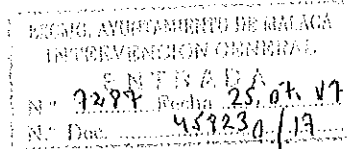 EXCMO. AYUNTAMIENTO DE MALAGA
INTERVENCION GENERAL
ENTRADA
N.º 7297 Fecha 25.07.17
N.º Doc. 458230/17